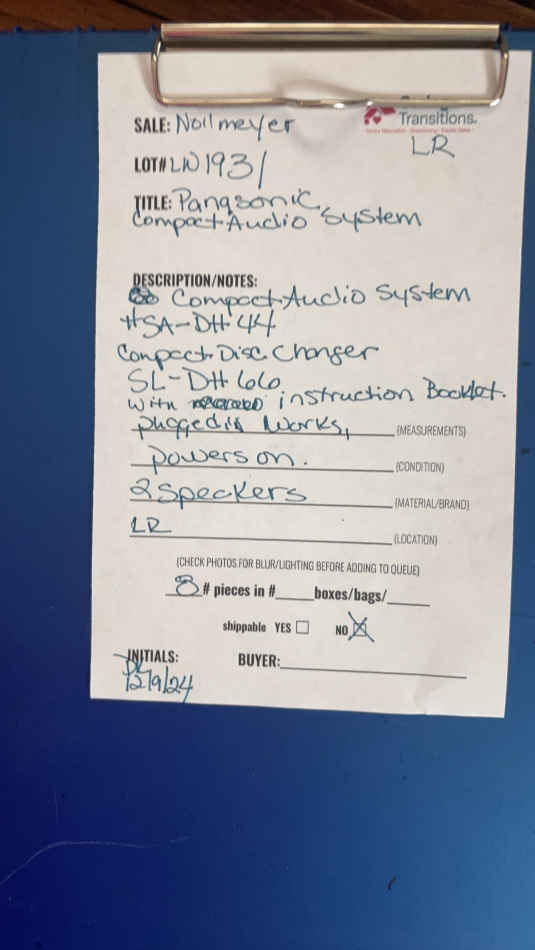 SALE: Nollmeyer
Transitions.
LR
LOT# LN1931
TITLE: Panasonic
Compact Audio System
DESCRIPTION/NOTES:
Compact Audio System
#SA-DH44
Compact Disc Changer
SL-DH66
With instruction Booklet.
plugged in Works, (MEASUREMENTS)
powers on. (CONDITION)
2 Speakers (MATERIAL/BRAND)
LR (LOCATION)
(CHECK PHOTOS FOR BLUR/LIGHTING BEFORE ADDING TO QUEUE)
8 # pieces in #_____ boxes/bags/_____
shippable YES ☐ NO ☒
INITIALS: BUYER:
12/9/24